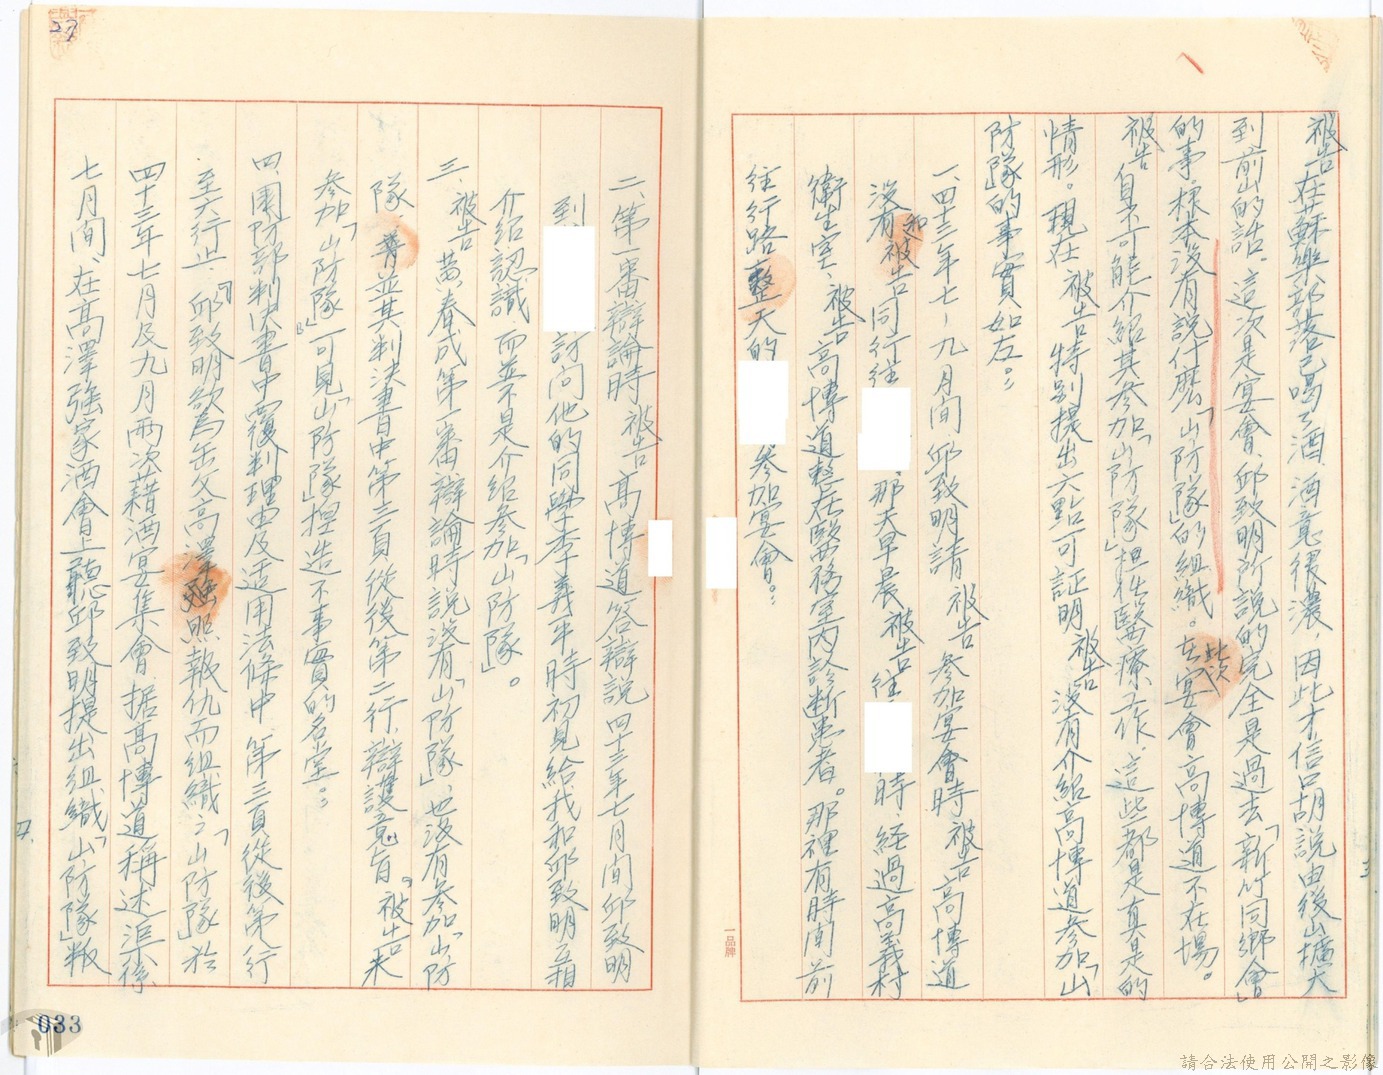 被告在蘇樂部落已喝了酒,酒意很濃,因此才信口胡說由後山擴大
到前山的話。這次是宴會,邱致明所說的完全是過去「新竹同鄉會」
的事,根本沒有說什麽「山防隊」的組織。在此次宴會高博道不在場。
被告自不可能介紹其參加「山防隊」担任醫療工作,這些都是真是的
情形。現在被告特別提出六點可証明被告沒有介紹高博道參加「山
防隊的事實如左:
一、四十三年七、九月間邱致明請被告參加宴會時被告高博道
沒有和被告同行往
那天早晨被告往
時,経過高義村
衛生室,被告高博道整在醫務室內診断患者。那裡有時間前
往行路一整天的
參加宴會。
二、第一審辯論時被告高博道答辯說四十三年七月間邱致明
到
訪問他的同學李義平時初見給我和邱致明互相
介紹認識而並不是介紹參加「山防隊」。
三、被告黃春成第一審辯論時說沒有「山防隊」也沒有參加「山防
隊,並其判決書中第三頁從後第二行,辯護意旨「被告未
參加「山防隊」可見「山防隊」揑造不事實的名堂。
四、國防部判決書中覆判理由及适用法條中,第三頁從後第一行
至六行止,「邱致明欲為岳父高澤照報仇而組織之「山防隊」於
四十三年七月及九月兩次藉酒宴集會據高博道稱述渠係
七月間,在高澤強家酒會上聽邱致明提出組織「山防隊」叛
27
033
一品牌
請合法使用公開之影像